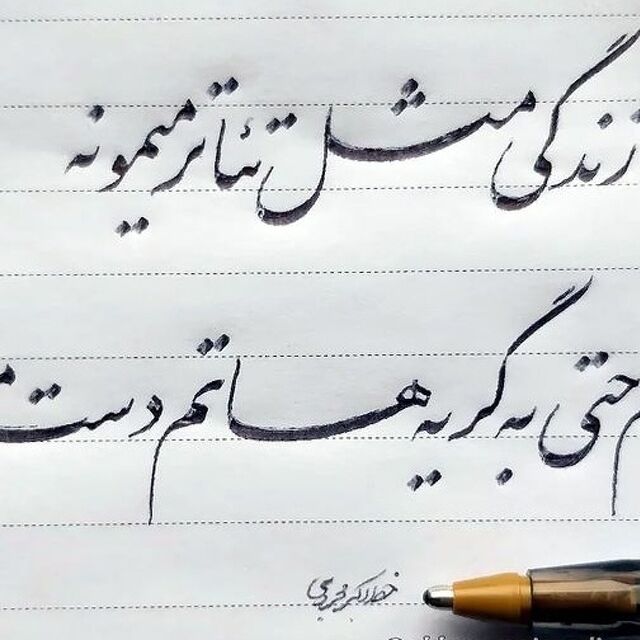 زندگی مثل تئاتر میمونه
م حتی به گریه هاتم دست م